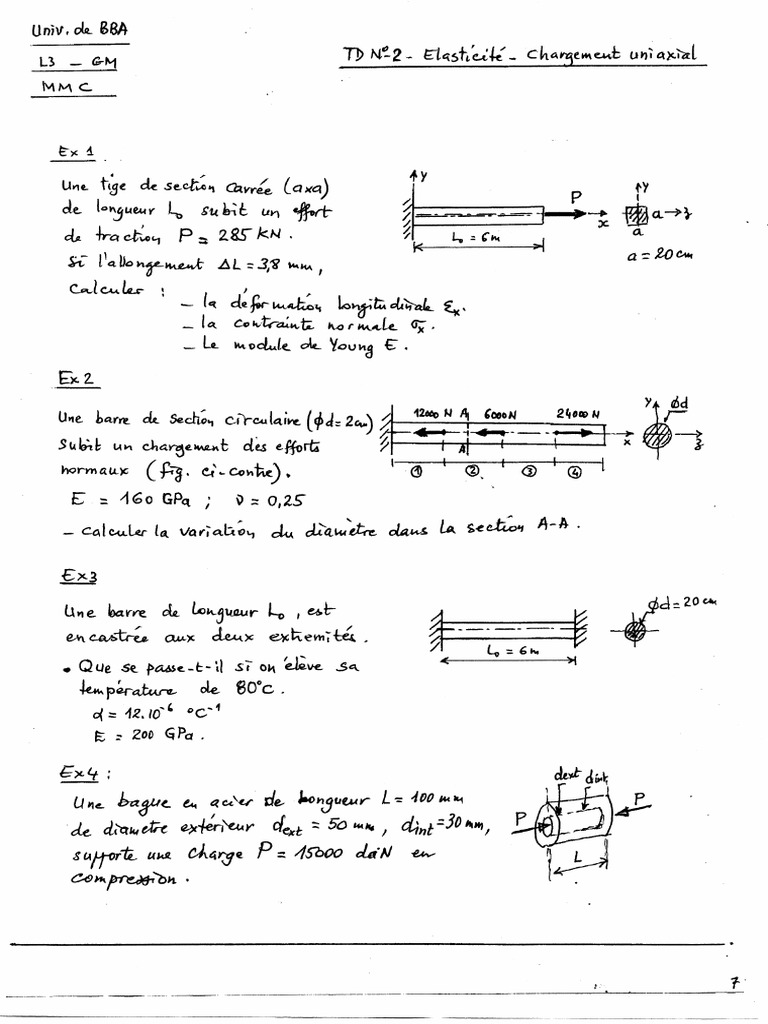 Univ. de BBA
L3 _ GM
MMC
TD N°2 - Elasticité - Chargement uniaxial
Ex 1
Une tige de section carrée (axa)
de longueur L₀ subit un effort
de traction P = 285 KN.
Si l'allongement ΔL = 3,8 mm,
Calculer :
- la déformation longitudinale εx.
- la contrainte normale σx.
- Le module de Young E.
y
P
x
L₀ = 6m
y
a
z
a
a = 20 cm
Ex 2
Une barre de section circulaire (Φd = 2cm)
subit un chargement des efforts
normaux (fig. ci-contre).
E = 160 GPa ; ν = 0,25
- Calculer la variation du diamètre dans la section A-A.
12000 N A 6000N 24000 N
A
x
① ② ③ ④
y
Φd
z
Ex3
Une barre de longueur L₀, est
encastrée aux deux extremités.
• Que se passe-t-il si on élève sa
température de 80°C.
α = 12.10⁻⁶ °C⁻¹
E = 200 GPa.
L₀ = 6m
Φd = 20 cm
Ex4 :
Une bague en acier de longueur L = 100 mm
de diametre extérieur dext = 50 mm, dint = 30 mm,
supporte une charge P = 15000 daN en
compression.
dext dint
P
P
L
7